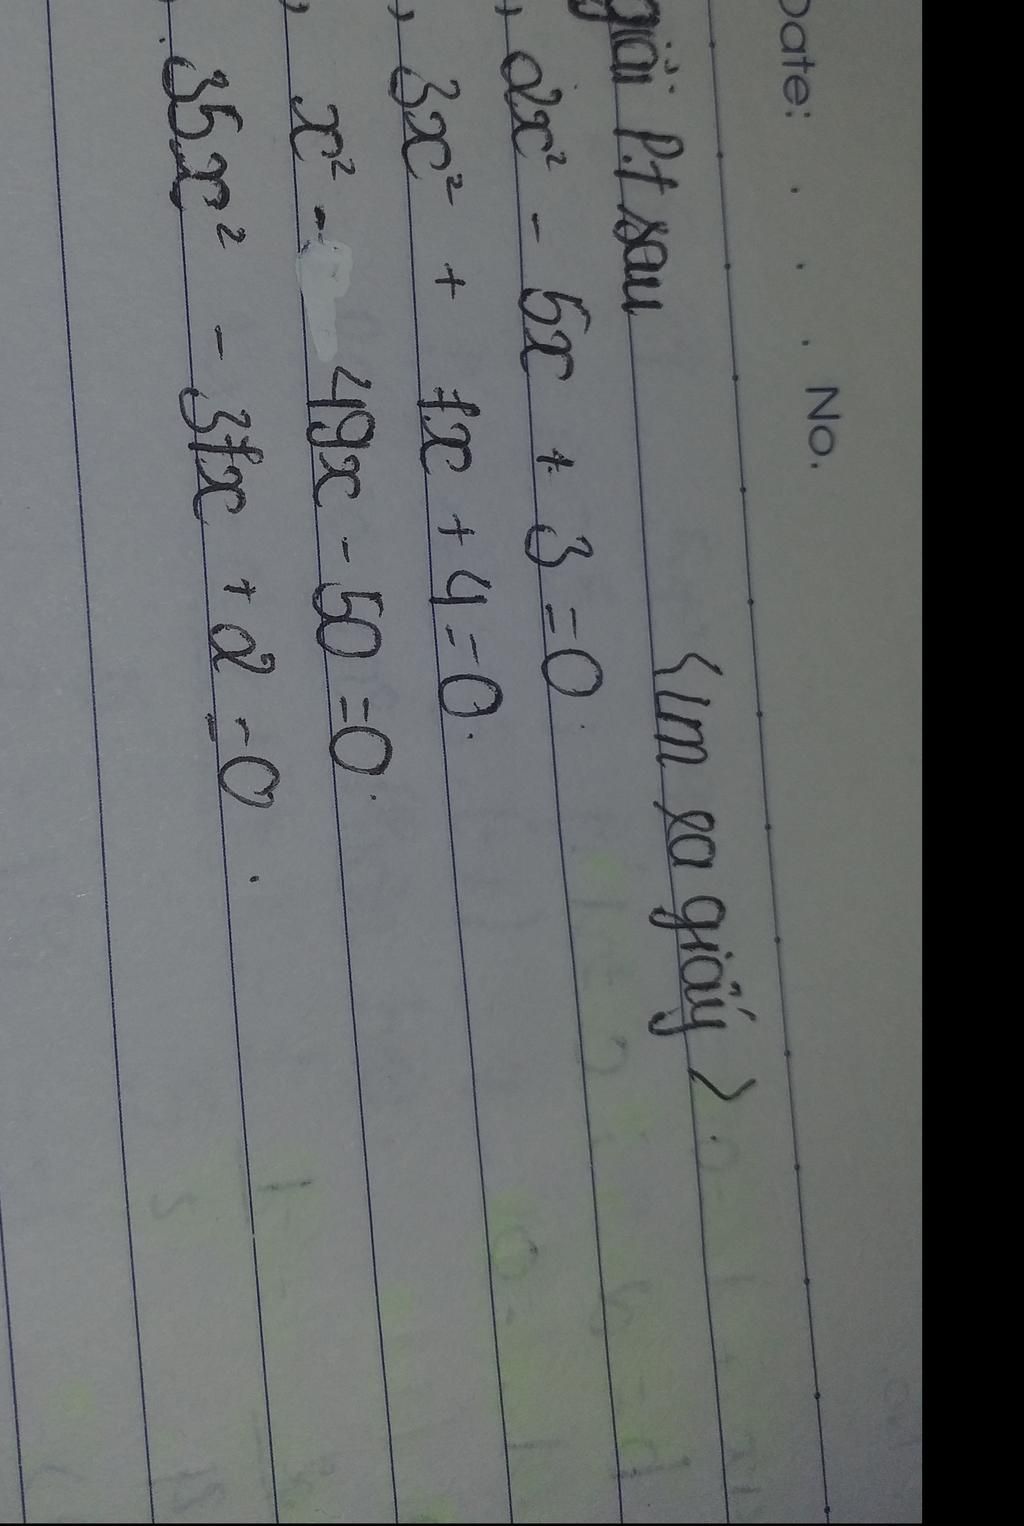 Date: . . . No.
giải P.t sau <lm ra giấy>.
, 2x² - 5x + 3 = 0.
, 3x² + 7x + 4 = 0.
, x² - 49x - 50 = 0.
, 35x² - 37x + 2 = 0.